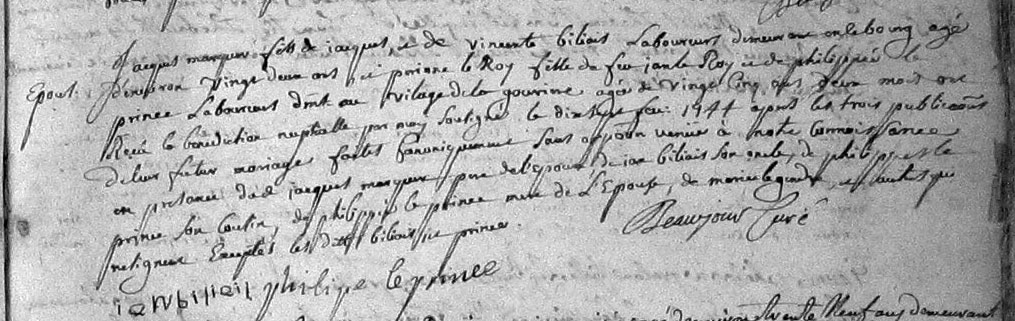 Epous.
Jacques marquer fils de jacques, et de vincente biliais Laboureurs demeurant en le bourg agé
denviron vingt deux ans, et perinne le Roy fille de feu jan le Roy et de philippes le
prince Laboureurs dmt au vilage de la gourine agée de vingt cinq ans deux mois ont
Reçu la benediction nuptialle par moy soubsigné le dix sept feu. 1744 apres les trois publicaons
de leur futur mariage faites Canoniquement sans oppõn venüe à notre connoissance
en presance dud. jacques marquer pere de l'epoux de jan biliais son oncle, de philippes le
prince son cousin, de philippes le prince mere de L'Epouse, de marie legendre, et autres qui
ne signent Exceptés les dits biliais et prince.
Beaujour Curé
ian biliais philipe le prince
trente Neuf ans demeurant